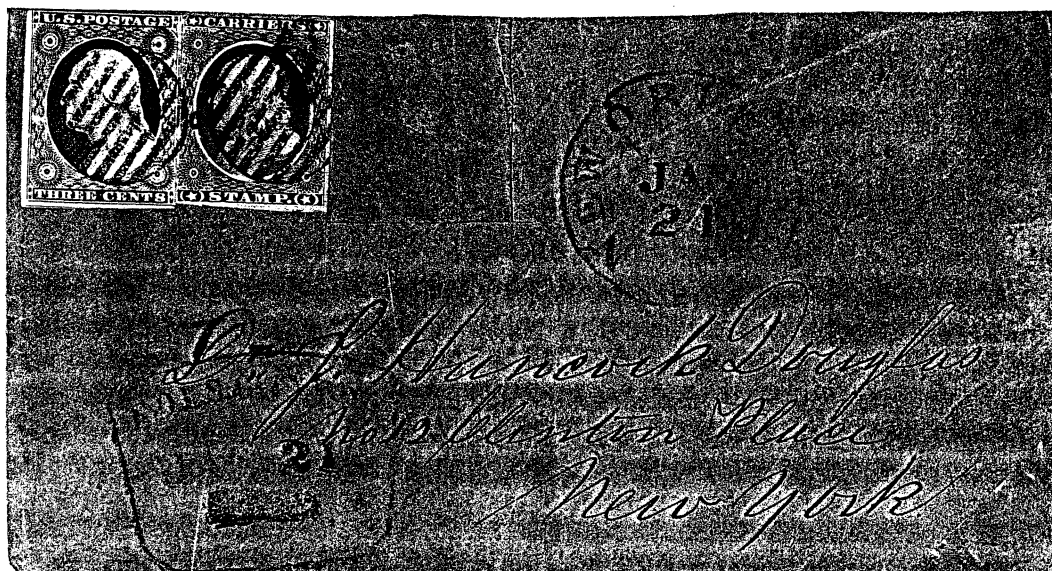 U.S. POSTAGE
THREE CENTS
CARRIERS
STAMP.
JAN
21
Dr. J. Hancock Douglas
Clinton Place
New York
21